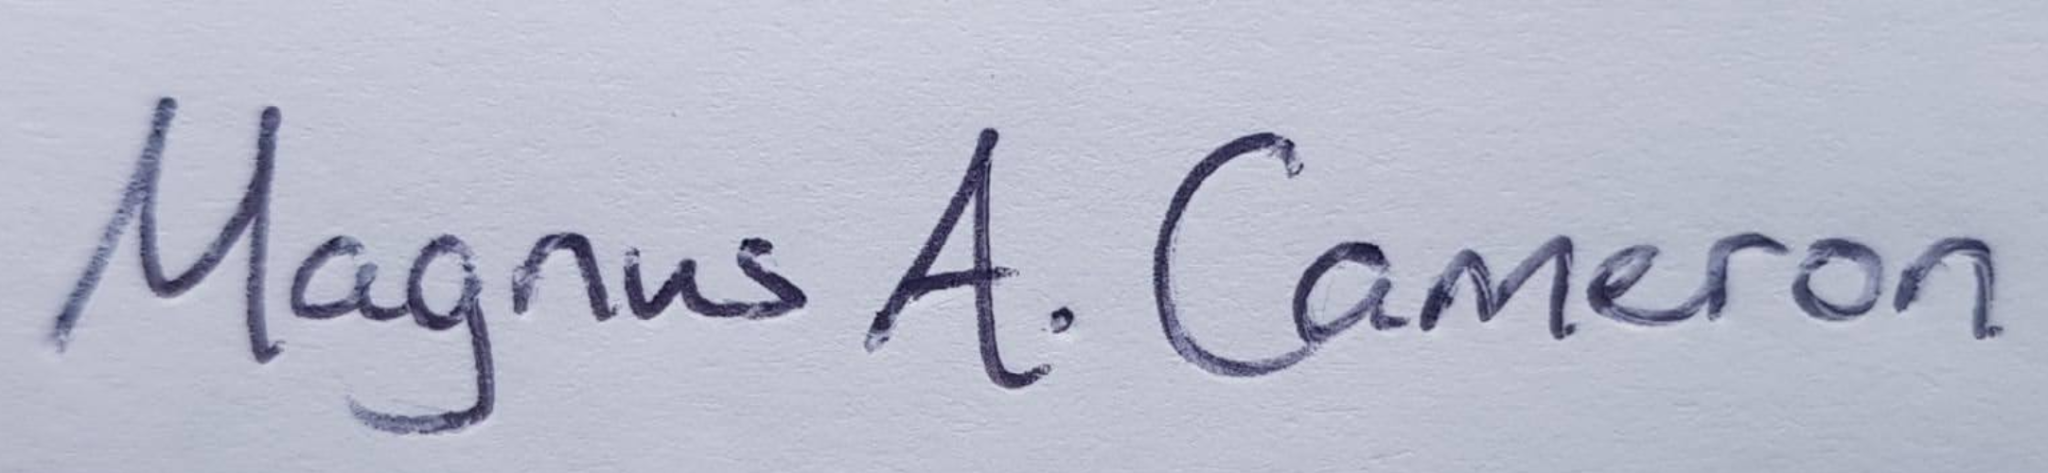 Magnus A. Cameron